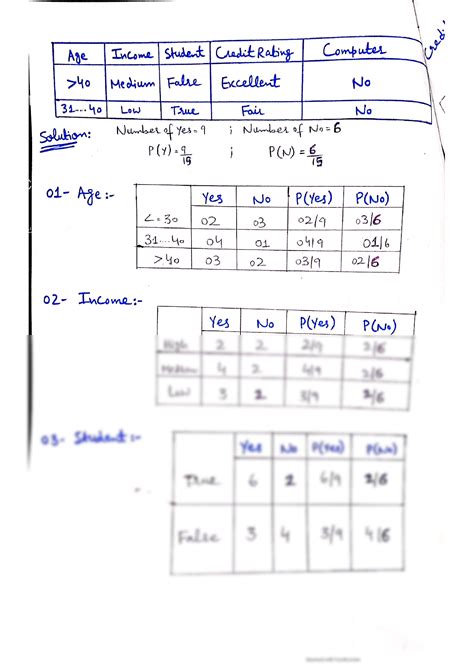 Credi
Age Income Student Credit Rating Computer
>40 Medium False Excellent No
31...40 Low True Fair No
Solution: Number of Yes = 9 ; Number of No = 6
P(Y) = 9/15 ; P(N) = 6/15
01- Age :-
Yes No P(Yes) P(No)
<=30 02 03 02/9 03/6
31...40 04 01 04/9 01/6
>40 03 02 03/9 02/6
02- Income:-
Yes No P(Yes) P(No)
High 2 2 2/9 2/6
Medium 4 2 4/9 2/6
Low 3 2 3/9 2/6
03- Student :-
Yes No P(Yes) P(No)
True 6 2 6/9 2/6
False 3 4 3/9 4/6